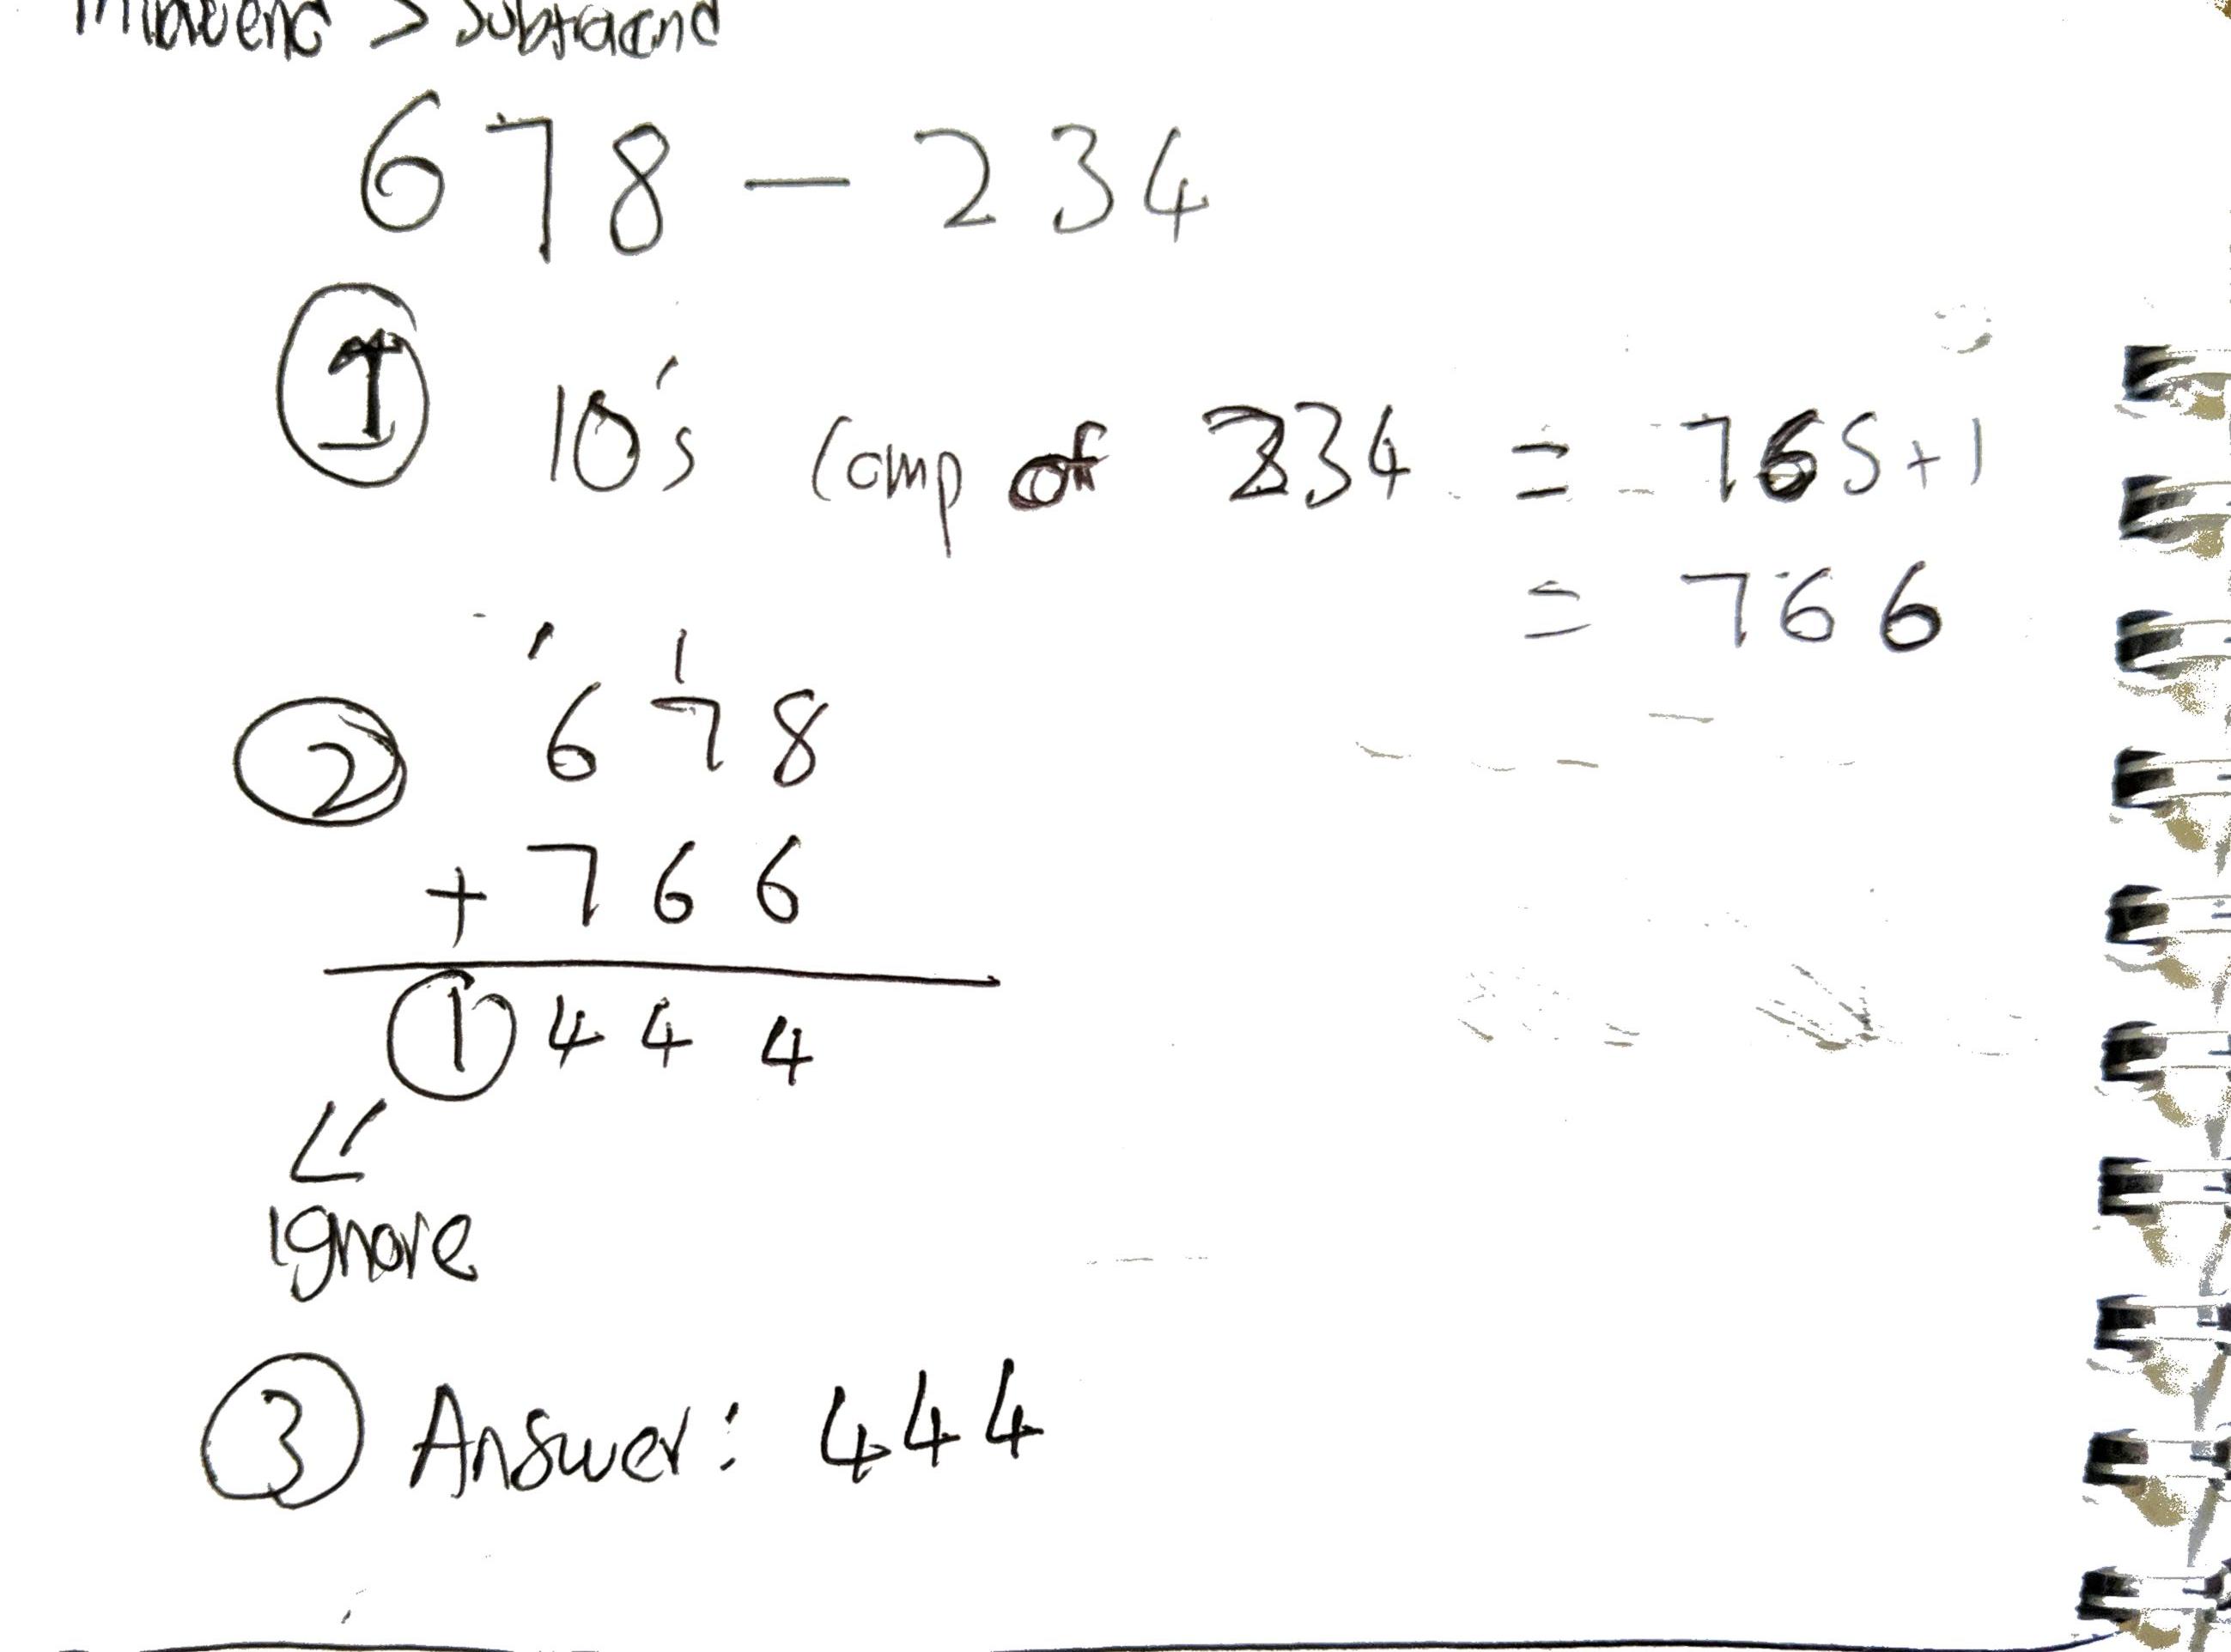 > Subtraend
678 - 234
1 10's comp of 234 = 765+1
= 766
1 1
2 678
+ 766
1444
ignore
3 Answer: 444